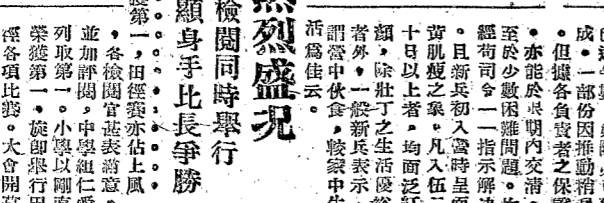 成。一部份因推動稍
。但據各負責者之保
。亦能於限期內交清。
至於少數困難問題。
經荀司令一一指示解決
。且新兵初入營時呈面
黃肌瘦之象。凡入伍二
十日以上者。均面泛紅
顏。除壯丁之生活優裕
者外。一般新兵表示。
謂營中伙食。較家中生
活爲佳云。
烈盛況
檢閱同時舉行
顯身手比長爭勝
獲第一。田徑賽亦佔上風
。各檢閱官甚表滿意。
並加評閱。中學組仁愛
列取第一。小學以剛
榮獲第一。旋卽舉行田
徑各項比賽。大會開